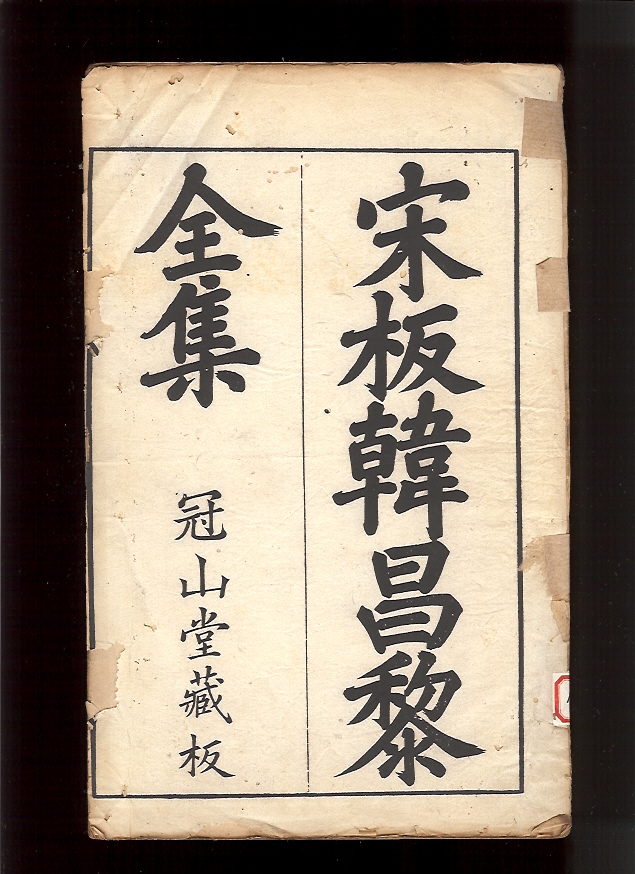 宋板韓昌黎
全集
冠山堂藏板